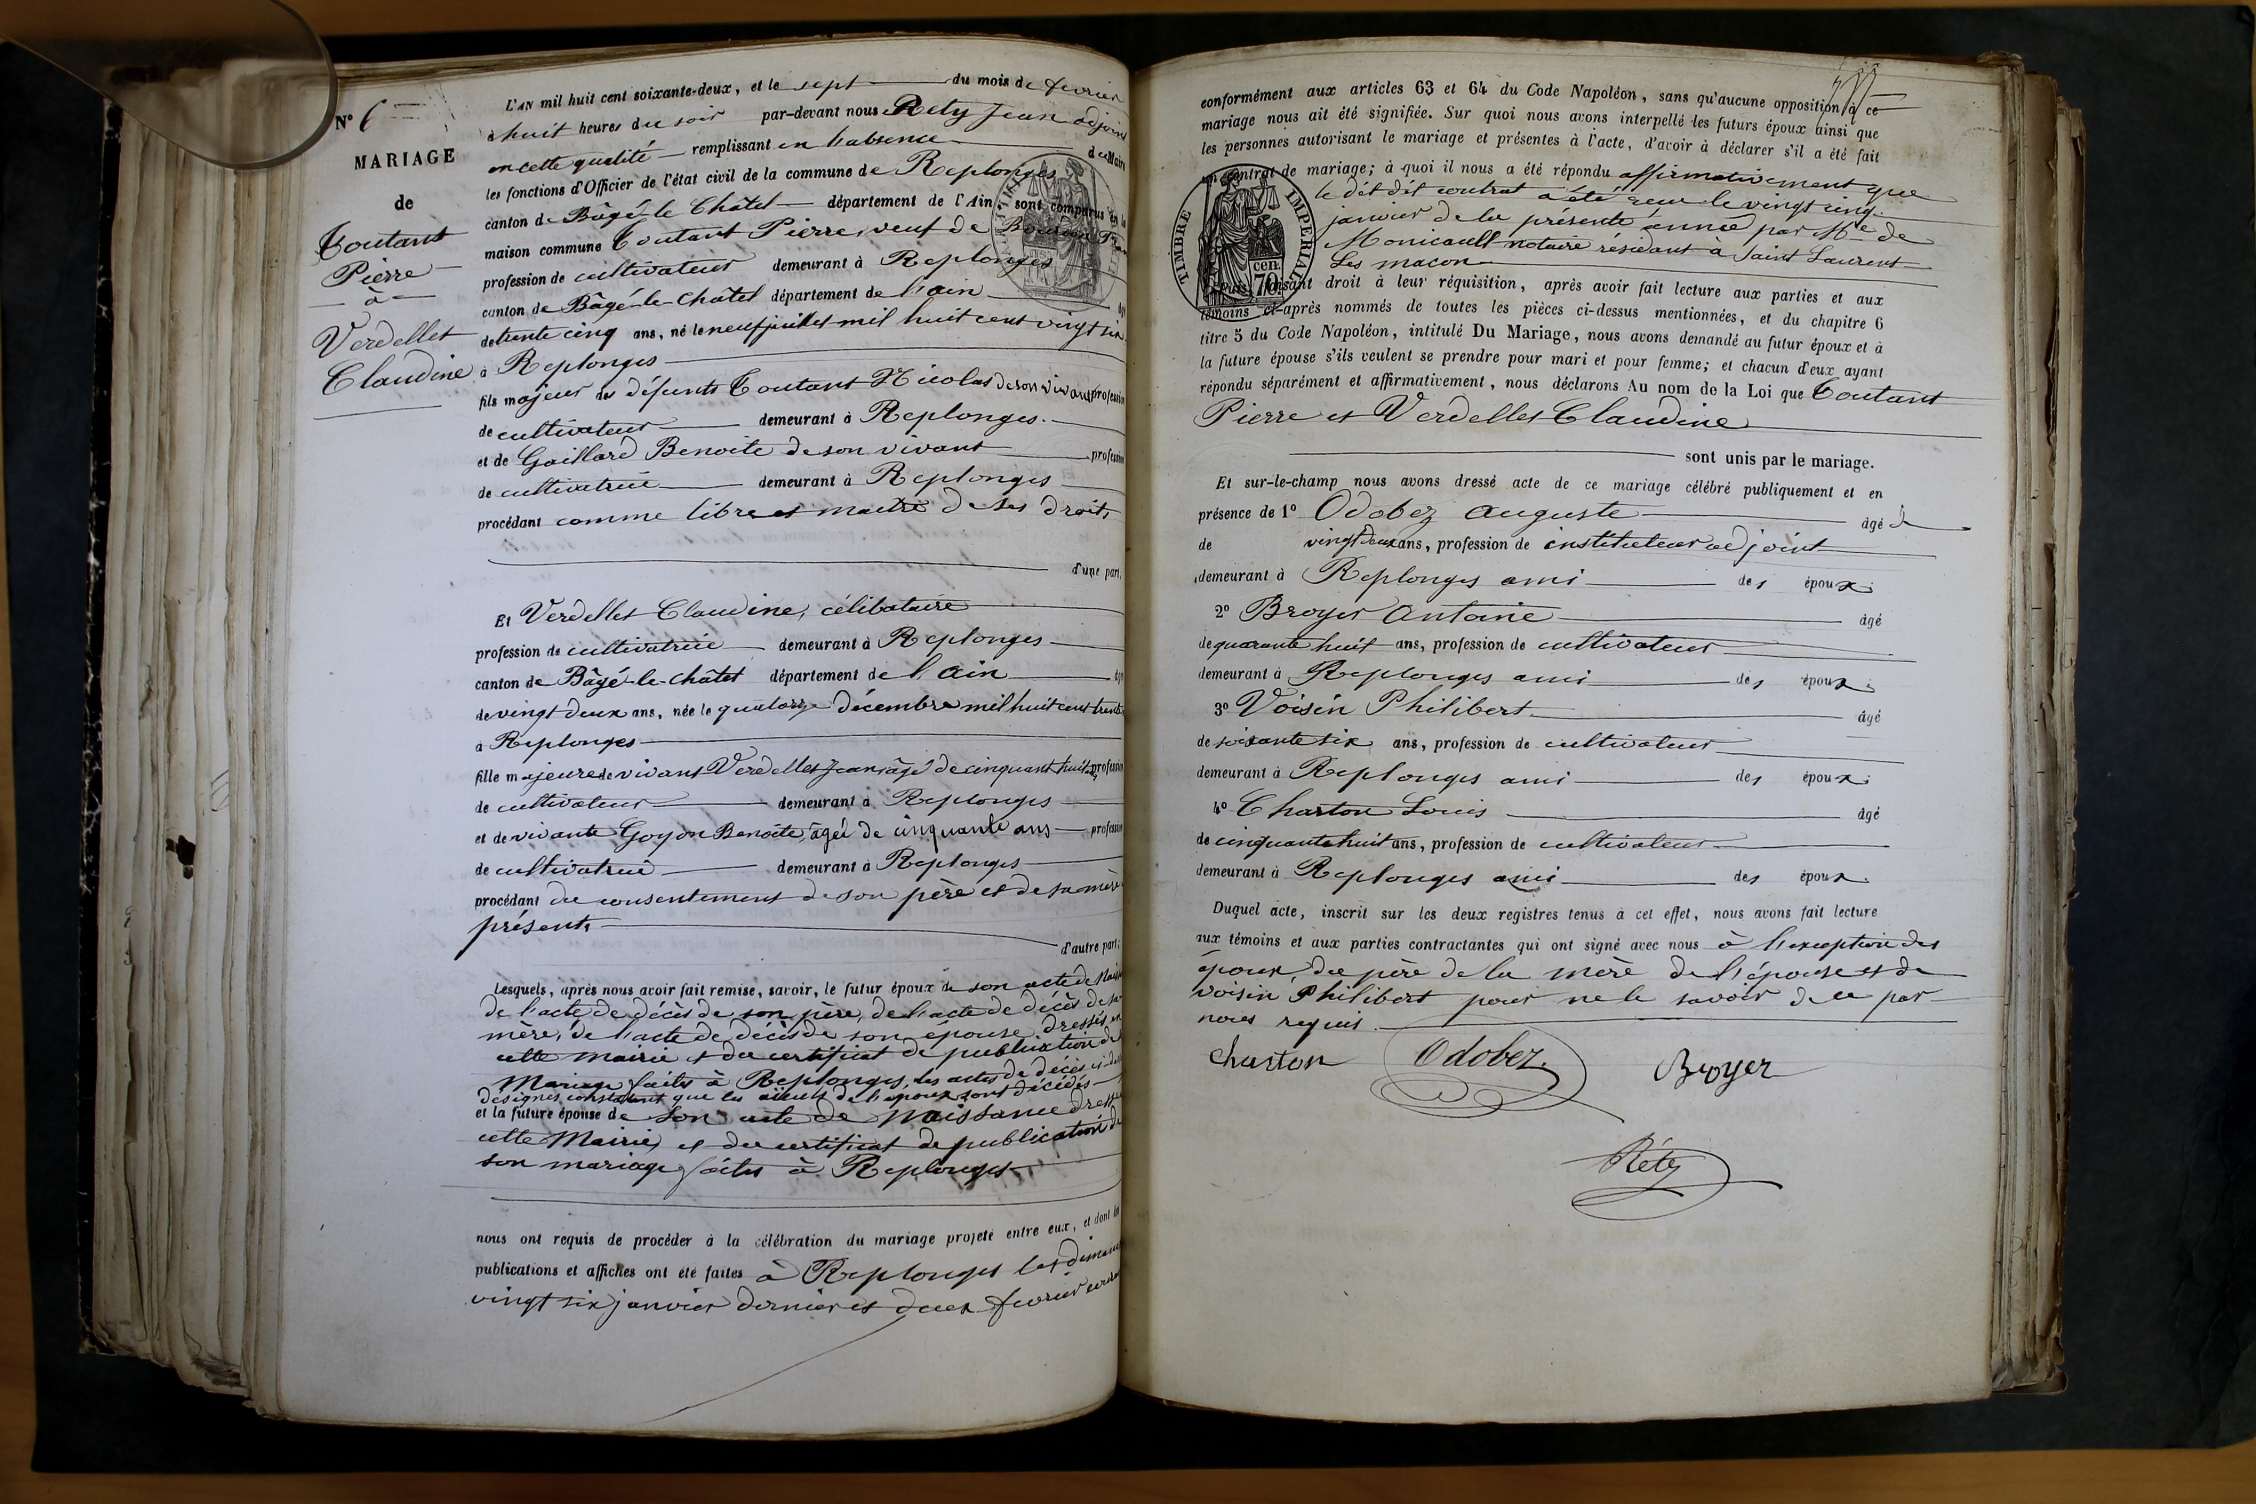 N° 6
MARIAGE
de
Toutant
Pierre
à
Verdellet
Claudine
L'AN mil huit cent soixante-deux, et le sept du mois de fevrier
à huit heures du soir par-devant nous Réty Jean adjoint
en cette qualité remplissant en l'absence du Maire
les fonctions d'Officier de l'état civil de la commune de Replonges
canton de Bâgé-le-Châtel département de l'Ain, sont comparus en la
maison commune Toutant Pierre, veuf de
profession de cultivateur demeurant à Replonges
canton de Bâgé-le-Châtel département de l'ain
de trente cinq ans, né le neuf juillet mil huit cent vingt six
à Replonges
fils majeur des défunts Toutant Nicolas de son vivant profession
de cultivateur demeurant à Replonges.
et de Gaillard Benoite de son vivant profession
de cultivatrice demeurant à Replonges
procédant comme libre et maitre de ses droits
d'une part,
Et Verdellet Claudine, célibataire
profession de cultivatrice demeurant à Replonges
canton de Bâgé-le-châtel département de l'Ain
de vingt deux ans, née le quatorze décembre mil huit cent trente
à Replonges
fille majeure de vivant Verdellet Jean âgé de cinquant huit ans profession
de cultivateur demeurant à Replonges
et de vivante Goyon Benoite, âgée de cinquante ans profession
de cultivatrice demeurant à Replonges
procédant du consentement de son père et de sa mère
présents
d'autre part;
Lesquels, après nous avoir fait remise, savoir, le futur époux de son acte de
de l'acte de décès de son père, de l'acte de décès de sa
mère, de l'acte de décès de son épouse dressés en
cette mairie et du certificat de publication de
Mariage faites à Replonges, les actes de décès ci-
désignés constatant que les aïeuls de l'époux sont décédés
et la future épouse de son acte de naissance dressé
cette Mairie, et du certificat de publication de
son mariage faites à Replonges
nous ont requis de procéder à la célébration du mariage projeté entre eux, et dont les
publications et affiches ont été faites à Replonges les dimanches
vingt six janvier dernier et deux fevrier courant
conformément aux articles 63 et 64 du Code Napoléon, sans qu'aucune opposition à ce
mariage nous ait été signifiée. Sur quoi nous avons interpellé les futurs époux ainsi que
les personnes autorisant le mariage et présentes à l'acte, d'avoir à déclarer s'il a été fait
un contrat de mariage; à quoi il nous a été répondu affirmativement que
le dit dit contrat a été reçu le vingt cinq
janvier de la présente année par Me de
Monicault notaire résidant à Saint Laurent
Les macon
TIMBRE IMPÉRIAL
70 cen.
Faisant droit à leur réquisition, après avoir fait lecture aux parties et aux
témoins ci-après nommés de toutes les pièces ci-dessus mentionnées, et du chapitre 6
titre 5 du Code Napoléon, intitulé Du Mariage, nous avons demandé au futur époux et à
la future épouse s'ils veulent se prendre pour mari et pour femme; et chacun d'eux ayant
répondu séparément et affirmativement, nous déclarons Au nom de la Loi que Toutant
Pierre et Verdellet Claudine
sont unis par le mariage.
Et sur-le-champ nous avons dressé acte de ce mariage célébré publiquement et en
présence de 1° Odobez Auguste âgé
de vingt deux ans, profession de instituteur adjoint
demeurant à Replonges ami des époux.
2° Broyer Antoine âgé
de quarante huit ans, profession de cultivateur
demeurant à Replonges ami des époux.
3° Voisin Philibert âgé
de soixante six ans, profession de cultivateur
demeurant à Replonges ami des époux.
4° Charton Louis âgé
de cinquante huit ans, profession de cultivateur
demeurant à Replonges ami des époux.
Duquel acte, inscrit sur les deux registres tenus à cet effet, nous avons fait lecture
aux témoins et aux parties contractantes qui ont signé avec nous à l'exception des
époux, du père de la mère de l'épouse et de
Voisin Philibert pour ne le savoir de ce par
nous requis
Charton Odobez. Broyer
Réty